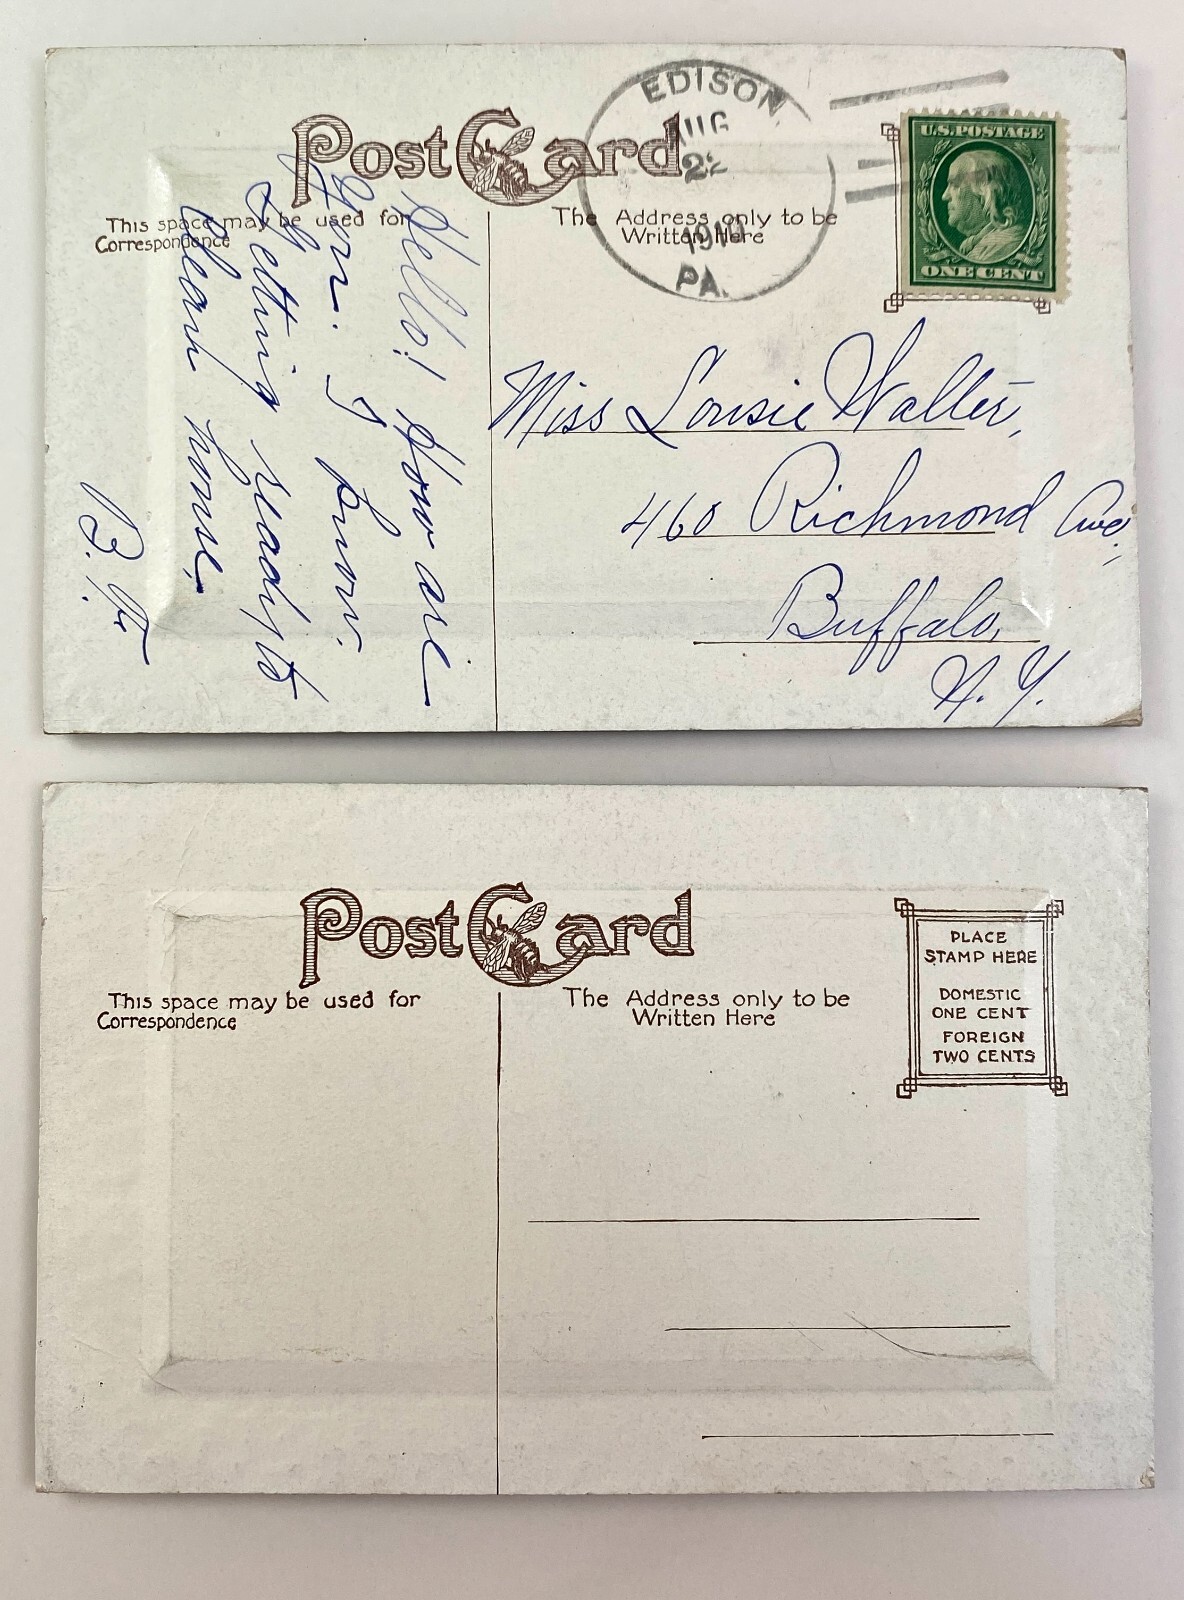 Post Card
This space may be used for
Correspondence
The Address only to be
Written Here
EDISON
AUG
22
1910
PA.
U.S. POSTAGE
ONE CENT
Hello! How are
you. I know.
Getting ready to
clean house.
B. 
Miss Lousie Walter,
460 Richmond Ave,
Buffalo,
N. Y.
Post Card
This space may be used for
Correspondence
The Address only to be
Written Here
PLACE
STAMP HERE
DOMESTIC
ONE CENT
FOREIGN
TWO CENTS